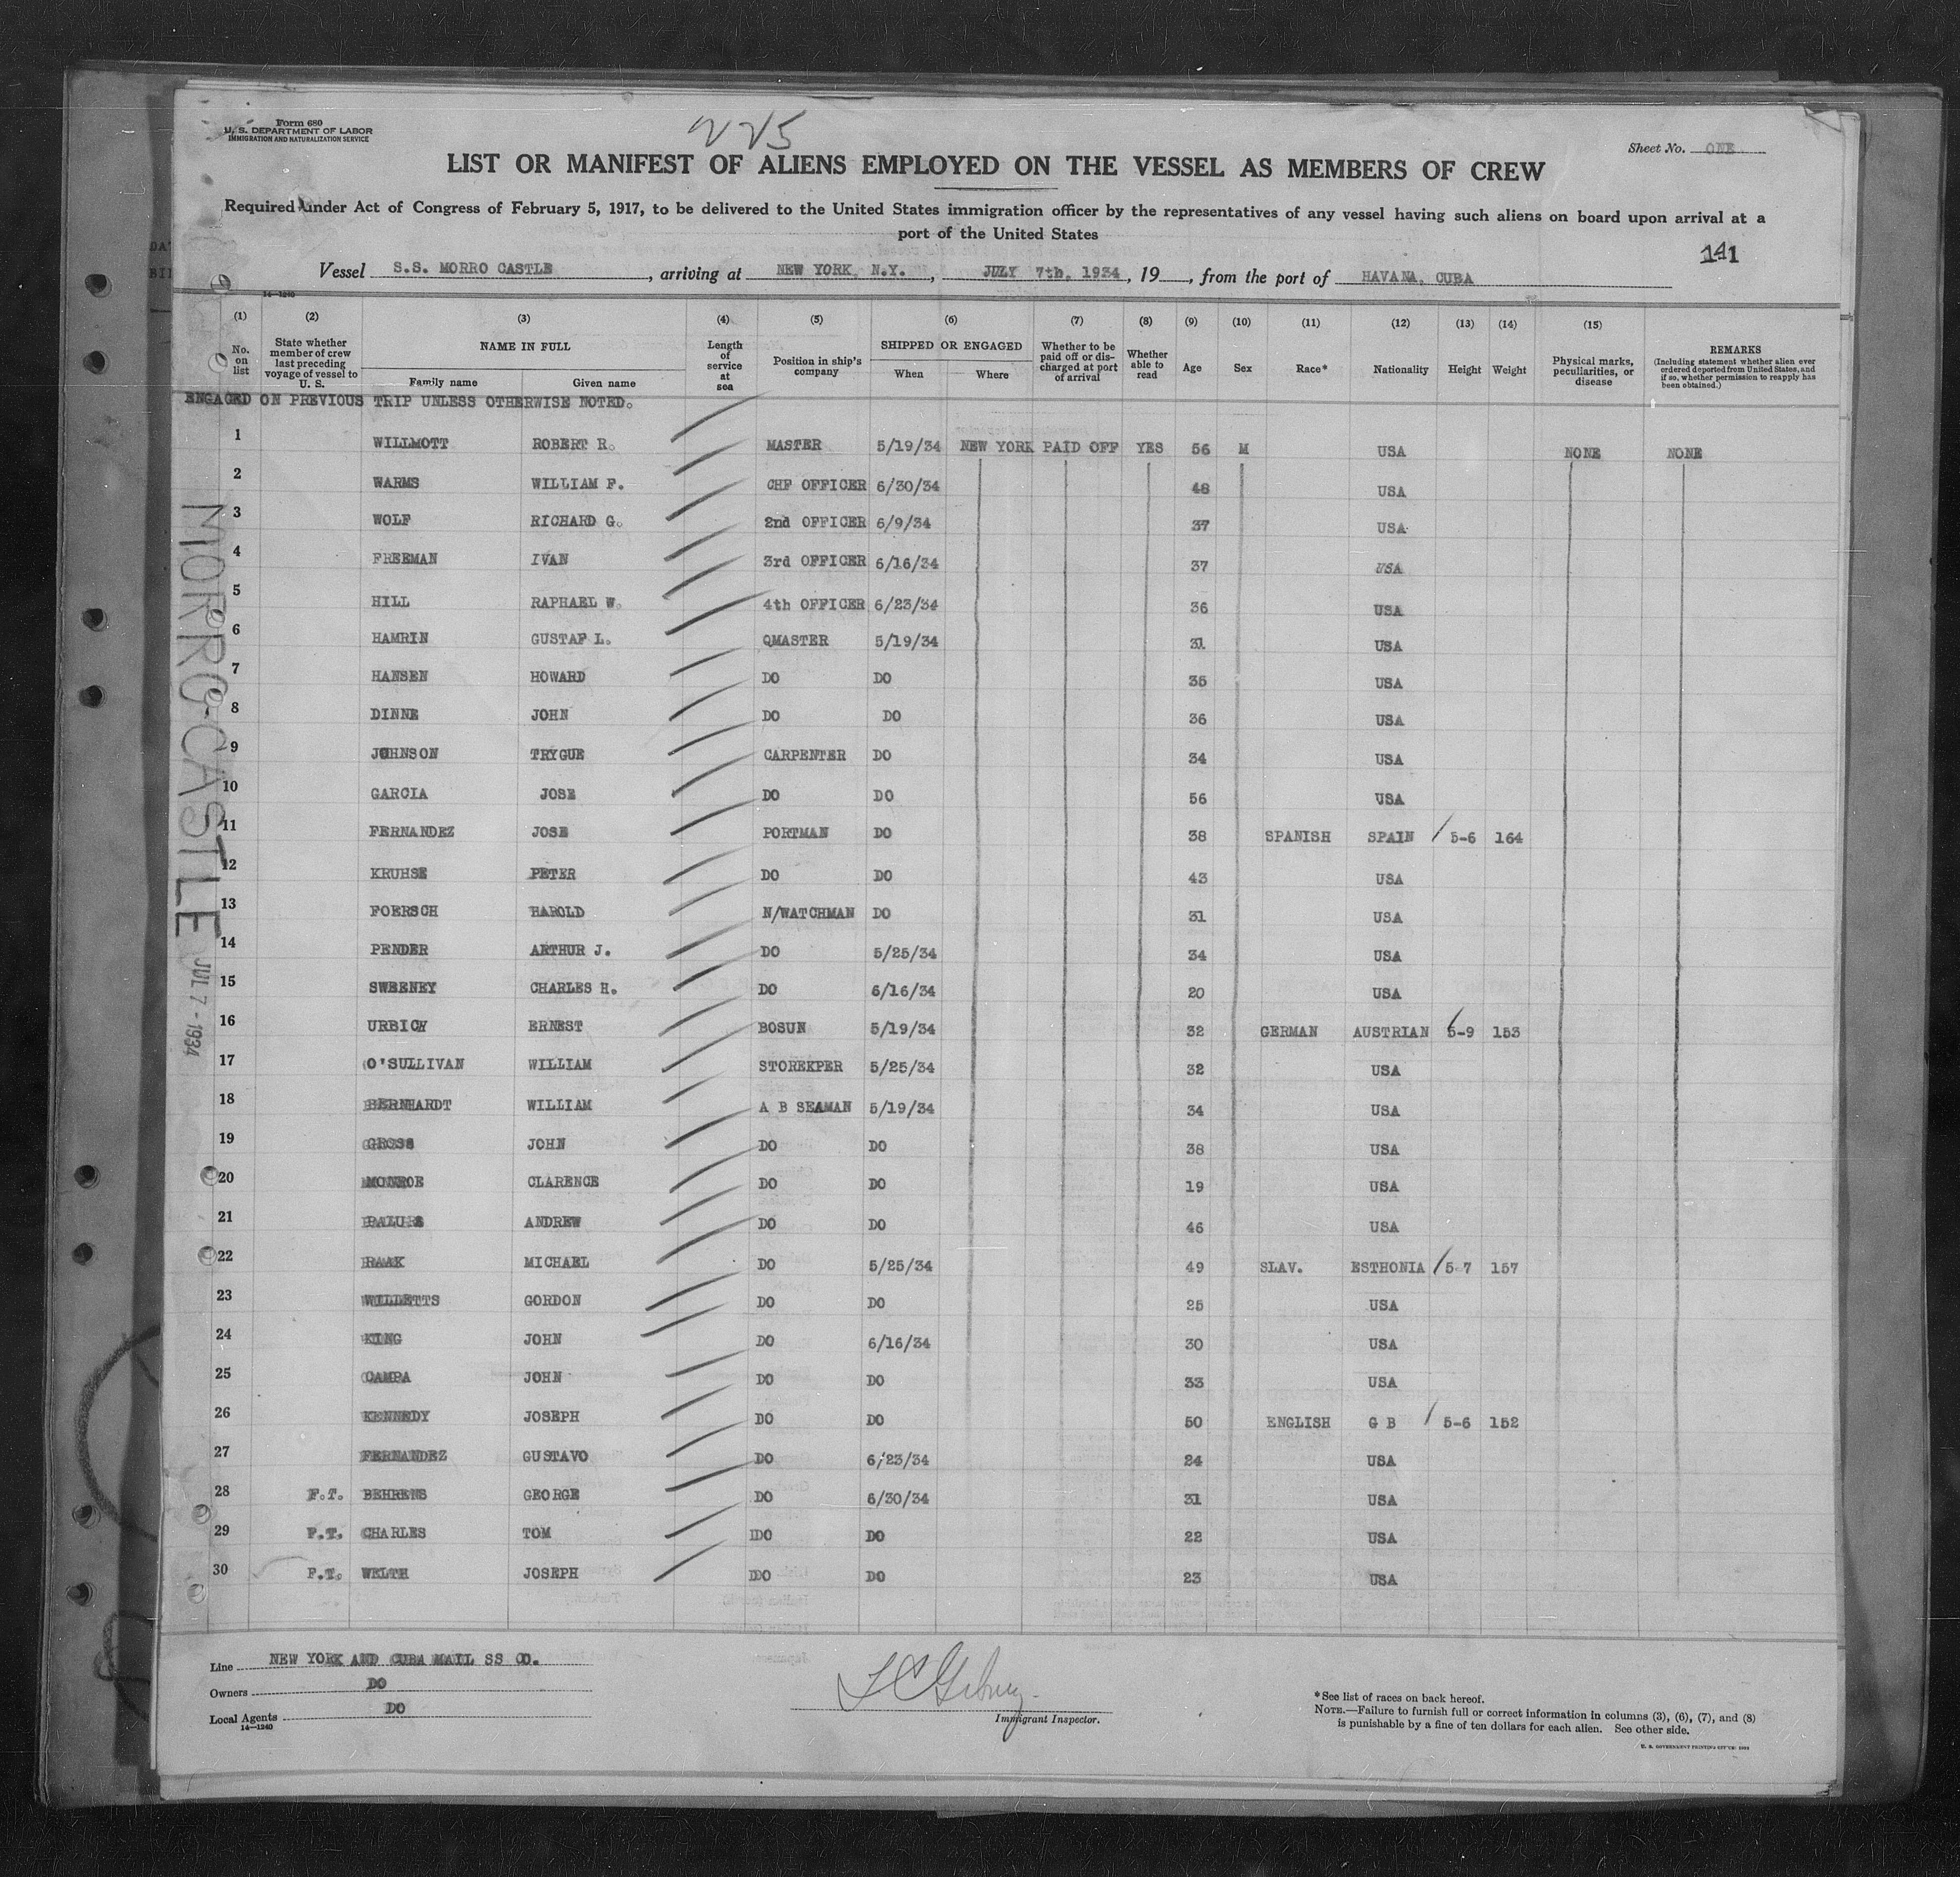 Form 680
U. S. DEPARTMENT OF LABOR
IMMIGRATION AND NATURALIZATION SERVICE
225
Sheet No. ONE
LIST OR MANIFEST OF ALIENS EMPLOYED ON THE VESSEL AS MEMBERS OF CREW
Required under Act of Congress of February 5, 1917, to be delivered to the United States immigration officer by the representatives of any vessel having such aliens on board upon arrival at a
port of the United States
141
Vessel S.S. MORRO CASTLE, arriving at NEW YORK, N.Y., JULY 7th, 1934, 19, from the port of HAVANA, CUBA
14—1240
(1) (2) (3) (4) (5) (6) (7) (8) (9) (10) (11) (12) (13) (14) (15)
No. on list State whether member of crew last preceding voyage of vessel to U. S. NAME IN FULL Family name Given name Length of service at sea Position in ship's company SHIPPED OR ENGAGED When Where Whether to be paid off or discharged at port of arrival Whether able to read Age Sex Race* Nationality Height Weight Physical marks, peculiarities, or disease REMARKS (Including statement whether alien ever ordered deported from United States, and if so, whether permission to reapply has been obtained.)
ENGAGED ON PREVIOUS TRIP UNLESS OTHERWISE NOTED.
1 WILLMOTT ROBERT R. MASTER 5/19/34 NEW YORK PAID OFF YES 56 M USA NONE NONE
2 WARMS WILLIAM F. CHF OFFICER 6/30/34 48 USA
3 WOLF RICHARD G. 2nd OFFICER 6/9/34 37 USA
4 FREEMAN IVAN 3rd OFFICER 6/16/34 37 USA
5 HILL RAPHAEL W. 4th OFFICER 6/23/34 36 USA
6 HAMRIN GUSTAF L. QMASTER 5/19/34 31 USA
7 HANSEN HOWARD DO DO 35 USA
8 DINNE JOHN DO DO 36 USA
9 JOHNSON TRYGUE CARPENTER DO 34 USA
10 GARCIA JOSE DO DO 56 USA
11 FERNANDEZ JOSE PORTMAN DO 38 SPANISH SPAIN 5-6 164
12 KRUHSE PETER DO DO 43 USA
13 FOERSCH HAROLD N/WATCHMAN DO 31 USA
14 PENDER ARTHUR J. DO 5/25/34 34 USA
15 SWEENEY CHARLES H. DO 6/16/34 20 USA
16 URBICH ERNEST BOSUN 5/19/34 32 GERMAN AUSTRIAN 5-9 153
17 O'SULLIVAN WILLIAM STOREKPER 5/25/34 32 USA
18 BERNHARDT WILLIAM A B SEAMAN 5/19/34 34 USA
19 GROSS JOHN DO DO 38 USA
20 MONROE CLARENCE DO DO 19 USA
21 ANDREW DO DO 46 USA
22 RAAK MICHAEL DO 5/25/34 49 SLAV. ESTHONIA 5-7 157
23 WILLETTS GORDON DO DO 25 USA
24 KING JOHN DO 6/16/34 30 USA
25 CAMPA JOHN DO DO 33 USA
26 KENNEDY JOSEPH DO DO 50 ENGLISH G B 5-6 152
27 FERNANDEZ GUSTAVO DO 6/23/34 24 USA
28 F.T. BEHRENS GEORGE DO 6/30/34 31 USA
29 F.T. CHARLES TOM DO DO 22 USA
30 F.T. WELTH JOSEPH DO DO 23 USA
MORRO-CASTLE JUL 7 - 1934
Line NEW YORK AND CUBA MAIL SS CO.
Owners DO
Local Agents DO
14—1240
Immigrant Inspector.
*See list of races on back hereof.
NOTE.—Failure to furnish full or correct information in columns (3), (6), (7), and (8)
is punishable by a fine of ten dollars for each alien. See other side.